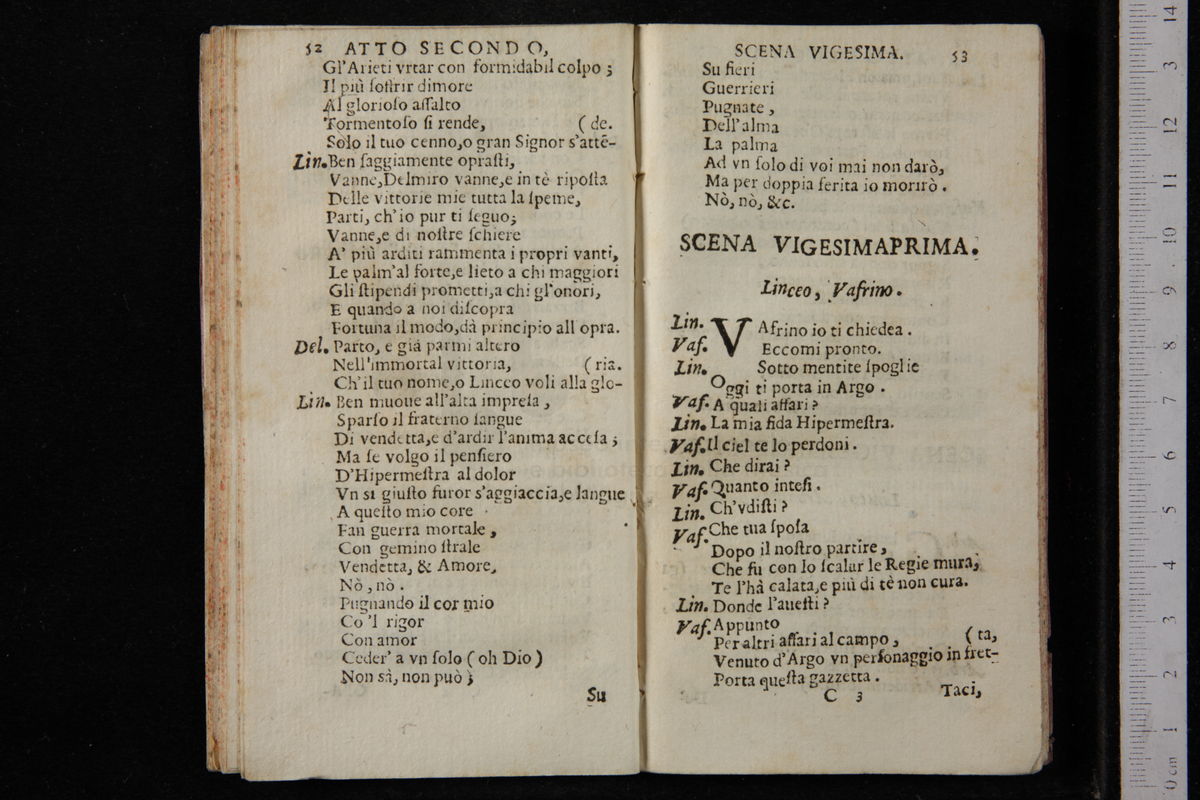 52 ATTO SECONDO,
Gl'Arieti vrtar con formidabil colpo ;
Il più ſoffrir dimore
Al glorioſo aſſalto
Tormentoſo ſi rende, ( de.
Solo il tuo cenno,o gran Signor s'attẽ-
Lin. Ben ſaggiamente opraſti,
Vanne,Delmiro vanne,e in tè ripoſta
Delle vittorie mie tutta la ſpeme,
Parti, ch'io pur ti ſeguo;
Vanne,e di noſtre ſchiere
A' più arditi rammenta i propri vanti,
Le palm'al forte,e lieto a chi maggiori
Gli ſtipendi prometti,a chi gl'onori,
E quando a noi diſcopra
Fortuna il modo,dà principio all opra.
Del. Parto, e già parmi altero
Nell'immortal vittoria, ( ria.
Ch'il tuo nome,o Linceo voli alla glo-
Lin. Ben muoue all'alta impreſa ,
Sparſo il fraterno ſangue
Di vendetta,e d'ardir l'anima acceſa ;
Ma ſe volgo il penſiero
D'Hipermeſtra al dolor
Vn sì giuſto furor s'agghiaccia,e langue
A queſto mio core
Fan guerra mortale ,
Con gemino ſtrale
Vendetta, & Amore,
Nò , nò .
Pugnando il cor mio
Co 'l rigor
Con amor
Ceder' a vn ſolo ( oh Dio )
Non sà, non può ;
Su
SCENA VIGESIMA. 53
Su fieri
Guerrieri
Pugnate ,
Dell'alma
La palma
Ad vn ſolo di voi mai non darò,
Ma per doppia ferita io morirò .
Nò, nò, &c.
SCENA VIGESIMAPRIMA.
Linceo, Vafrino.
Lin. VAfrino io ti chiedea .
Vaf. Eccomi pronto.
Lin. Sotto mentite ſpoglie
Oggi ti porta in Argo .
Vaf. A quali affari ?
Lin. La mia fida Hipermeſtra.
Vaf. Il ciel te lo perdoni .
Lin. Che dirai ?
Vaf. Quanto inteſi .
Lin. Ch'vdiſti ?
Vaf. Che tua ſpoſa
Dopo il noſtro partire ,
Che fù con lo ſcalar le Regie mura,
Te l'hà calata,e più di tè non cura.
Lin. Donde l'aueſti ?
Vaf. Appunto
Per altri affari al campo , ( ta,
Venuto d'Argo vn perſonaggio in fret-
Porta queſta gazzetta .
C 3 Taci,